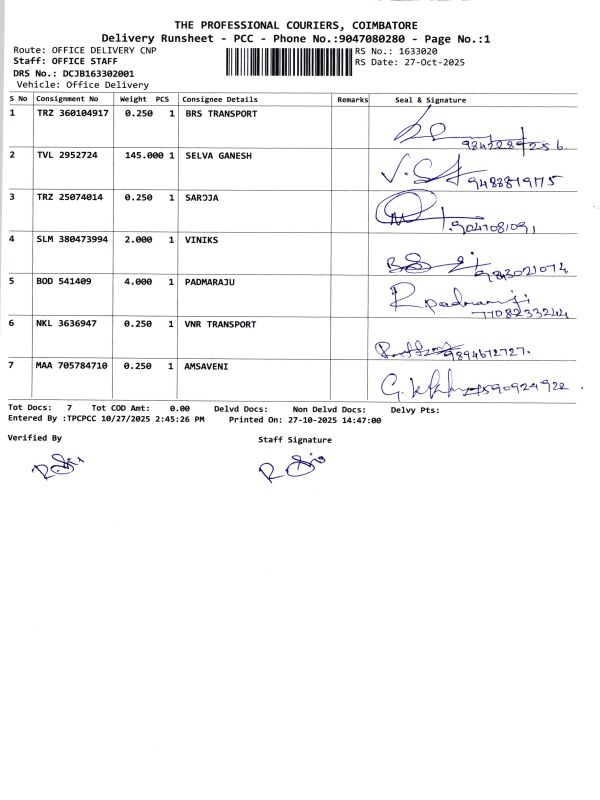 THE PROFESSIONAL COURIERS, COIMBATORE
Delivery Runsheet - PCC - Phone No.:9047080280 - Page No.:1
Route: OFFICE DELIVERY CNP RS No.: 1633020
Staff: OFFICE STAFF RS Date: 27-Oct-2025
DRS No.: DCJB163302001
Vehicle: Office Delivery
S No Consignment No Weight PCS Consignee Details Remarks Seal & Signature
1 TRZ 360104917 0.250 1 BRS TRANSPORT
2 TVL 2952724 145.000 1 SELVA GANESH
9488819175
3 TRZ 25074014 0.250 1 SAROJA
4 SLM 380473994 2.000 1 VINIKS
5 BOD 541409 4.000 1 PADMARAJU
6 NKL 3636947 0.250 1 VNR TRANSPORT
9894612727.
7 MAA 705784710 0.250 1 AMSAVENI
Tot Docs: 7 Tot COD Amt: 0.00 Delvd Docs: Non Delvd Docs: Delvy Pts:
Entered By :TPCPCC 10/27/2025 2:45:26 PM Printed On: 27-10-2025 14:47:00
Verified By Staff Signature